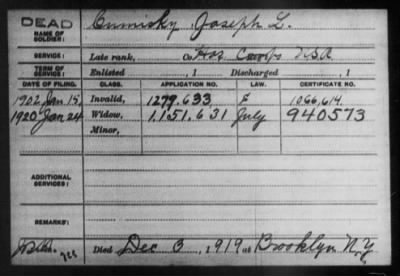 DEAD
NAME OF SOLDIER: Cumisky, Joseph L.
SERVICE: Late rank, Co. Hos Corps U.S.A.
TERM OF SERVICE: Enlisted , 1 Discharged , 1
DATE OF FILING. CLASS. APPLICATION NO. LAW. CERTIFICATE NO.
1902 Jan. 15, Invalid, 1279.633 E 1066,614.
1920 Jan 24 Widow, 1.151.631 July 940573
Minor,
ADDITIONAL SERVICES:
REMARKS:
Died Dec 3, 1919 at Brooklyn N.Y.